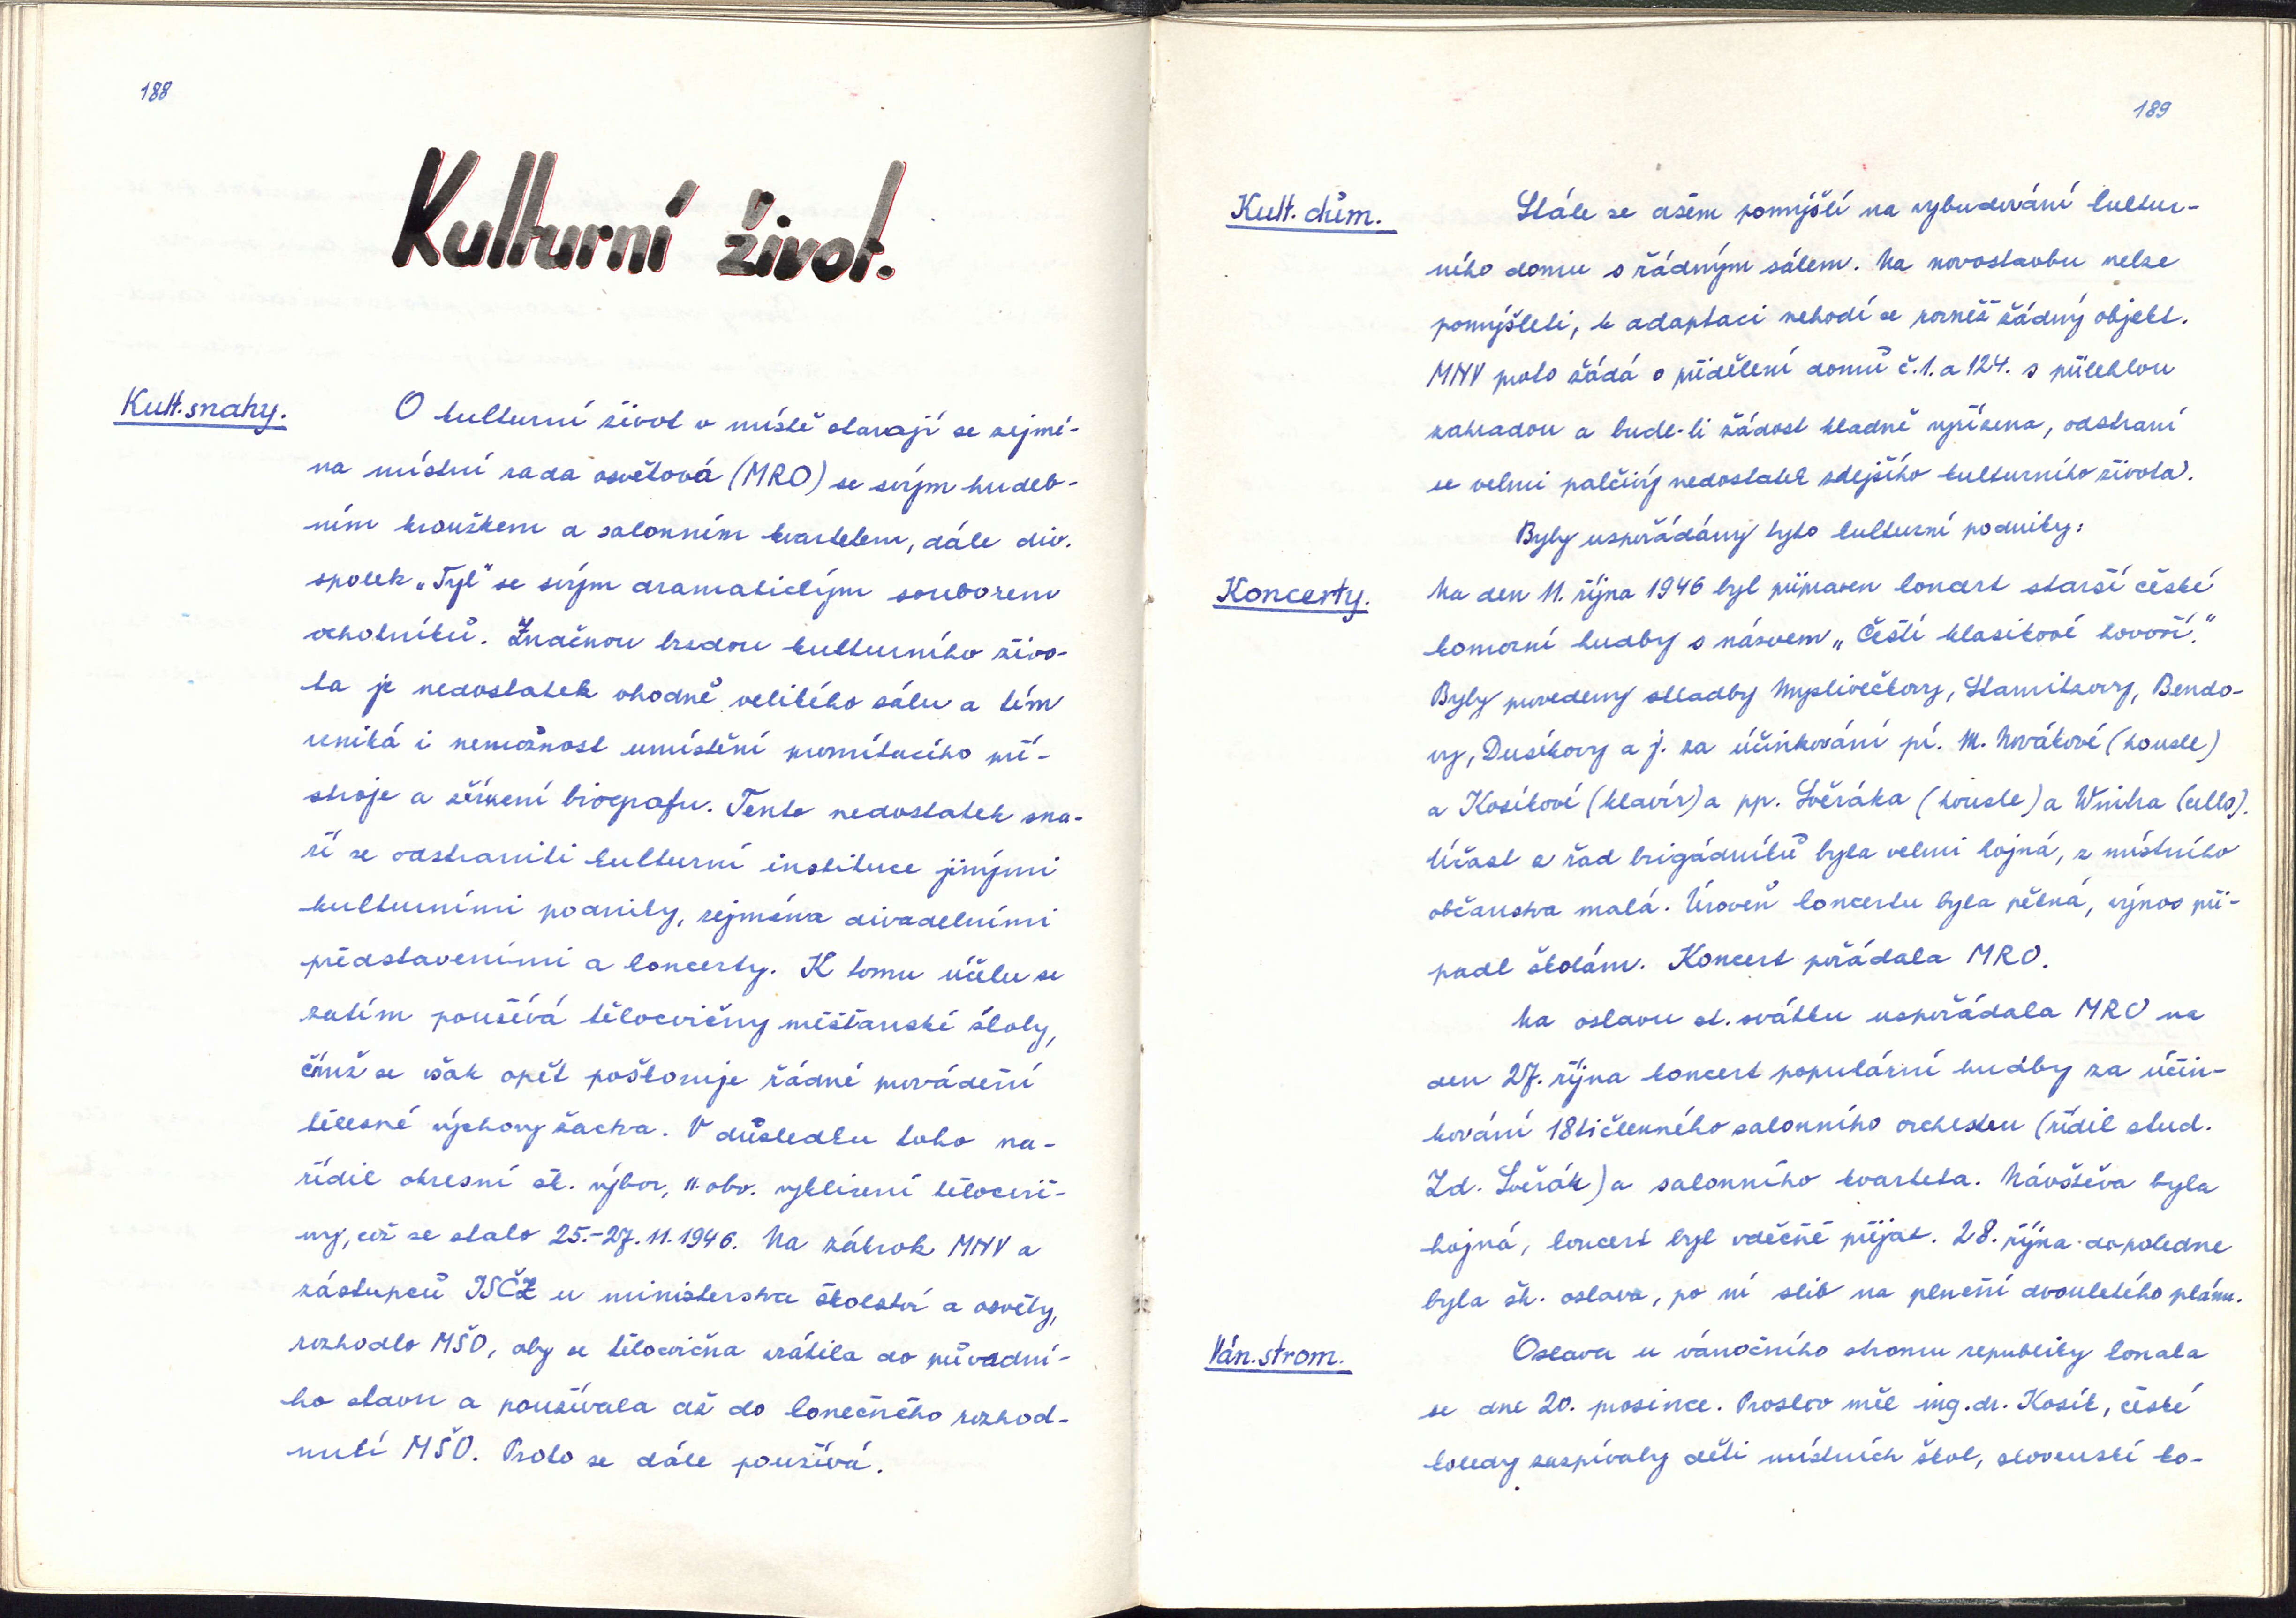 188
Kulturní život.
Kult. snahy.
O kulturní život v místě starají se zejmé-
na místní rada osvětová (MRO) se svým hudeb-
ním kroužkem a salonním kvartetem, dále div.
spolek „Tyl" se svým dramatickým souborem
ochotníků. Značnou brzdou kulturního živo-
ta je nedostatek vhodně velikého sálu a tím
vzniká i nemožnost umístění promítacího pří-
stroje a zřízení biografu. Tento nedostatek sna-
ží se odstraniti kulturní instituce jinými
kulturními podniky, zejména divadelními
představeními a koncerty. K tomu účelu se
zatím používá tělocvičny měšťanské školy,
čímž se však opět poškozuje řádné provádění
tělesné výchovy žactva. V důsledku toho na-
řídil okresní šk. výbor, II. obv. vyklizení tělocvič-
ny, což se stalo 25.-27. 11. 1946. Na zákrok MNV a
zástupců JSČZ u ministerstva školství a osvěty,
rozhodlo MŠO, aby se tělocvična vrátila do původní-
ho stavu a používala až do konečného rozhod-
nutí MŠO. Proto se dále používá.
189
Kult. dům.
Stále se ašem pomýšlí na vybudování kultur-
ního domu s řádným sálem. Na novostavbu nelze
pomýšleti, k adaptaci nehodí se rovněž žádný objekt.
MNV proto žádá o přidělení domů č. 1. a 124. s přilehlou
zahradou a bude-li žádost kladně vyřízena, odstraní
se velmi palčivý nedostatek zdejšího kulturního života.
Byly uspořádány tyto kulturní podniky:
Koncerty.
Na den 11. října 1946 byl připraven koncert starší české
komorní hudby s názvem „Čeští klasikové hovoří."
Byly provedeny skladby Myslivečkovy, Stamitzovy, Bendo-
vy, Dusíkovy a j. za účinkování pí. M. Novákové (housle)
a Kosíkové (klavír) a pp. Svěráka (housle) a Wintra (cello).
Účast z řad brigádníků byla velmi hojná, z místního
občanstva malá. Úroveň koncertu byla pěkná, výnos při-
padl školám. Koncert pořádala MRO.
Na oslavu st. svátku uspořádala MRO na
den 27. října koncert populární hudby za účin-
kování 18tičlenného salonního orchestru (řídil stud.
Zd. Svěrák) a salonního kvarteta. Návštěva byla
hojná, koncert byl vděčně přijat. 28. října dopoledne
byla šk. oslava, po ní slib na plnění dvouletého plánu.
Ván. strom.
Oslava u vánočního stromu republiky konala
se dne 20. prosince. Proslov měl ing. dr. Kosík, české
koledy zazpívaly děti místních škol, slovenské ko-